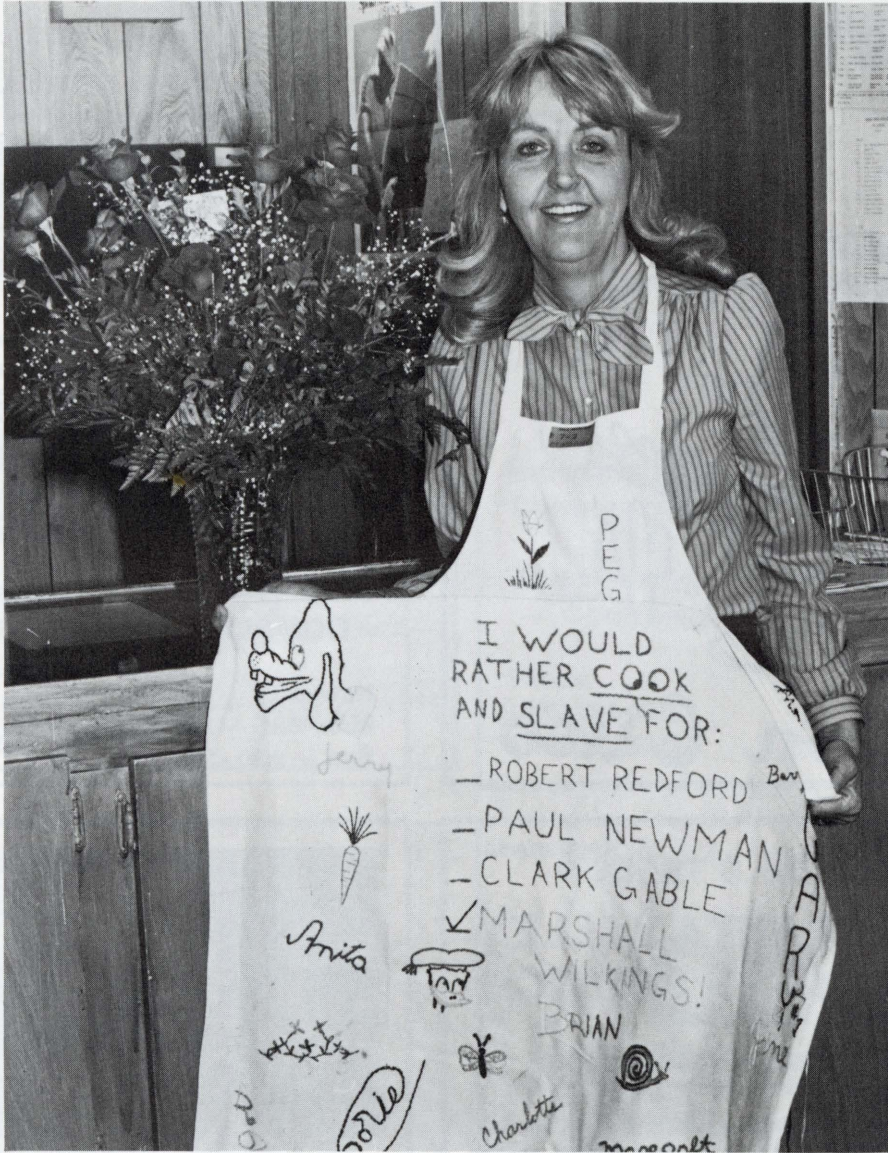 PEG
I WOULD
RATHER COOK
AND SLAVE FOR:
_ ROBERT REDFORD
_ PAUL NEWMAN
_ CLARK GABLE
MARSHALL
WILKINGS!
BRIAN
Jerry
Anita
Charlotte